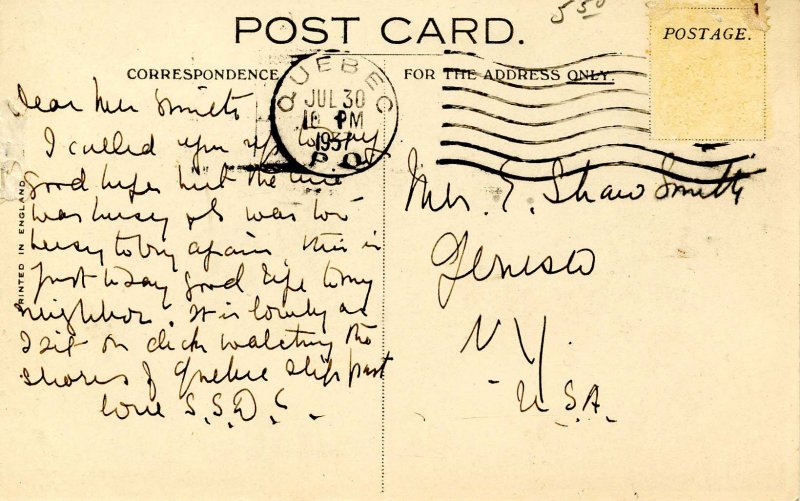 5 50
POST CARD.
POSTAGE.
CORRESPONDENCE
FOR THE ADDRESS ONLY.
QUEBEC
JUL 30
10 PM
1937
P.Q.
PRINTED IN ENGLAND
Dear Mrs Smith
I called you up to say
good bye but the line
was busy was too
busy to try again this is
just to say good bye to my
neighbor. It is lovely as
I sit on deck watching the
shores of Quebec slip past
love S.S.D.C.
Mrs. E. Shaw Smith
Geneseo
N.Y.
U.S.A.